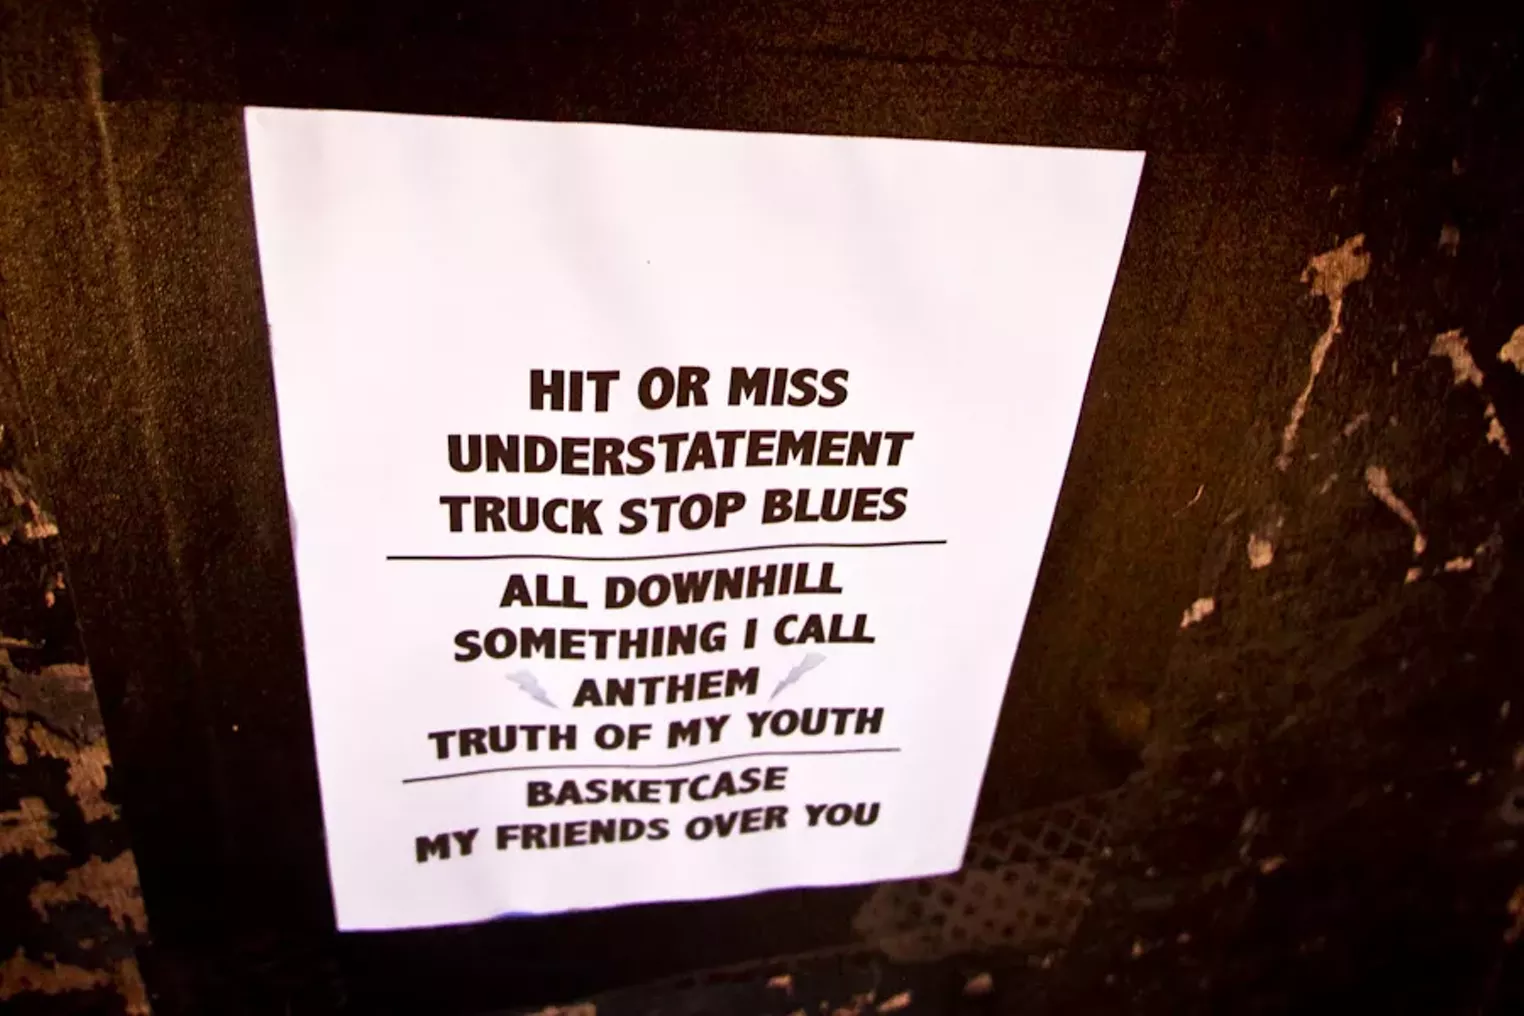 HIT OR MISS
UNDERSTATEMENT
TRUCK STOP BLUES
ALL DOWNHILL
SOMETHING I CALL
ANTHEM
TRUTH OF MY YOUTH
BASKETCASE
MY FRIENDS OVER YOU